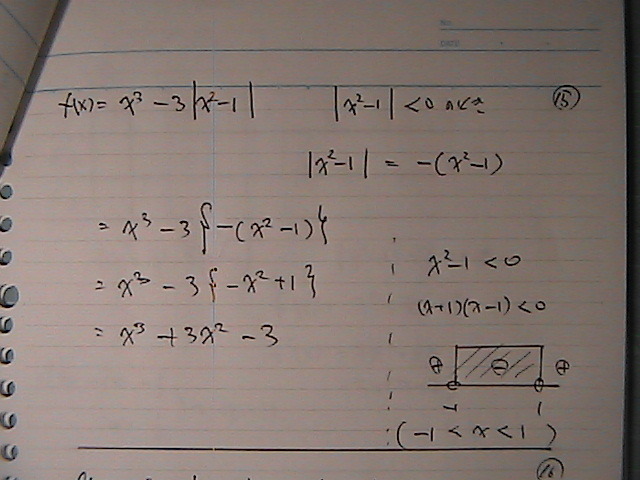 No.
DATE
f(x) = x³ - 3|x²-1| |x²-1| < 0 のとき ⑮
|x²-1| = -(x²-1)
= x³ - 3{-(x²-1)}
= x³ - 3{-x²+1}
= x³ + 3x² - 3
x²-1 < 0
(x+1)(x-1) < 0
⊕ ⊖ ⊕
-1 1
(-1 < x < 1)
⑯